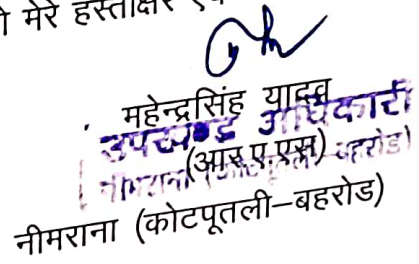 मेरे हस्ताक्षर
महेन्द्रसिंह यादव
उपखण्ड अधिकारी
(आर.ए.एस)
नीमराना (कोटपूतली-बहरोड)
नीमराना (कोटपूतली–बहरोड)